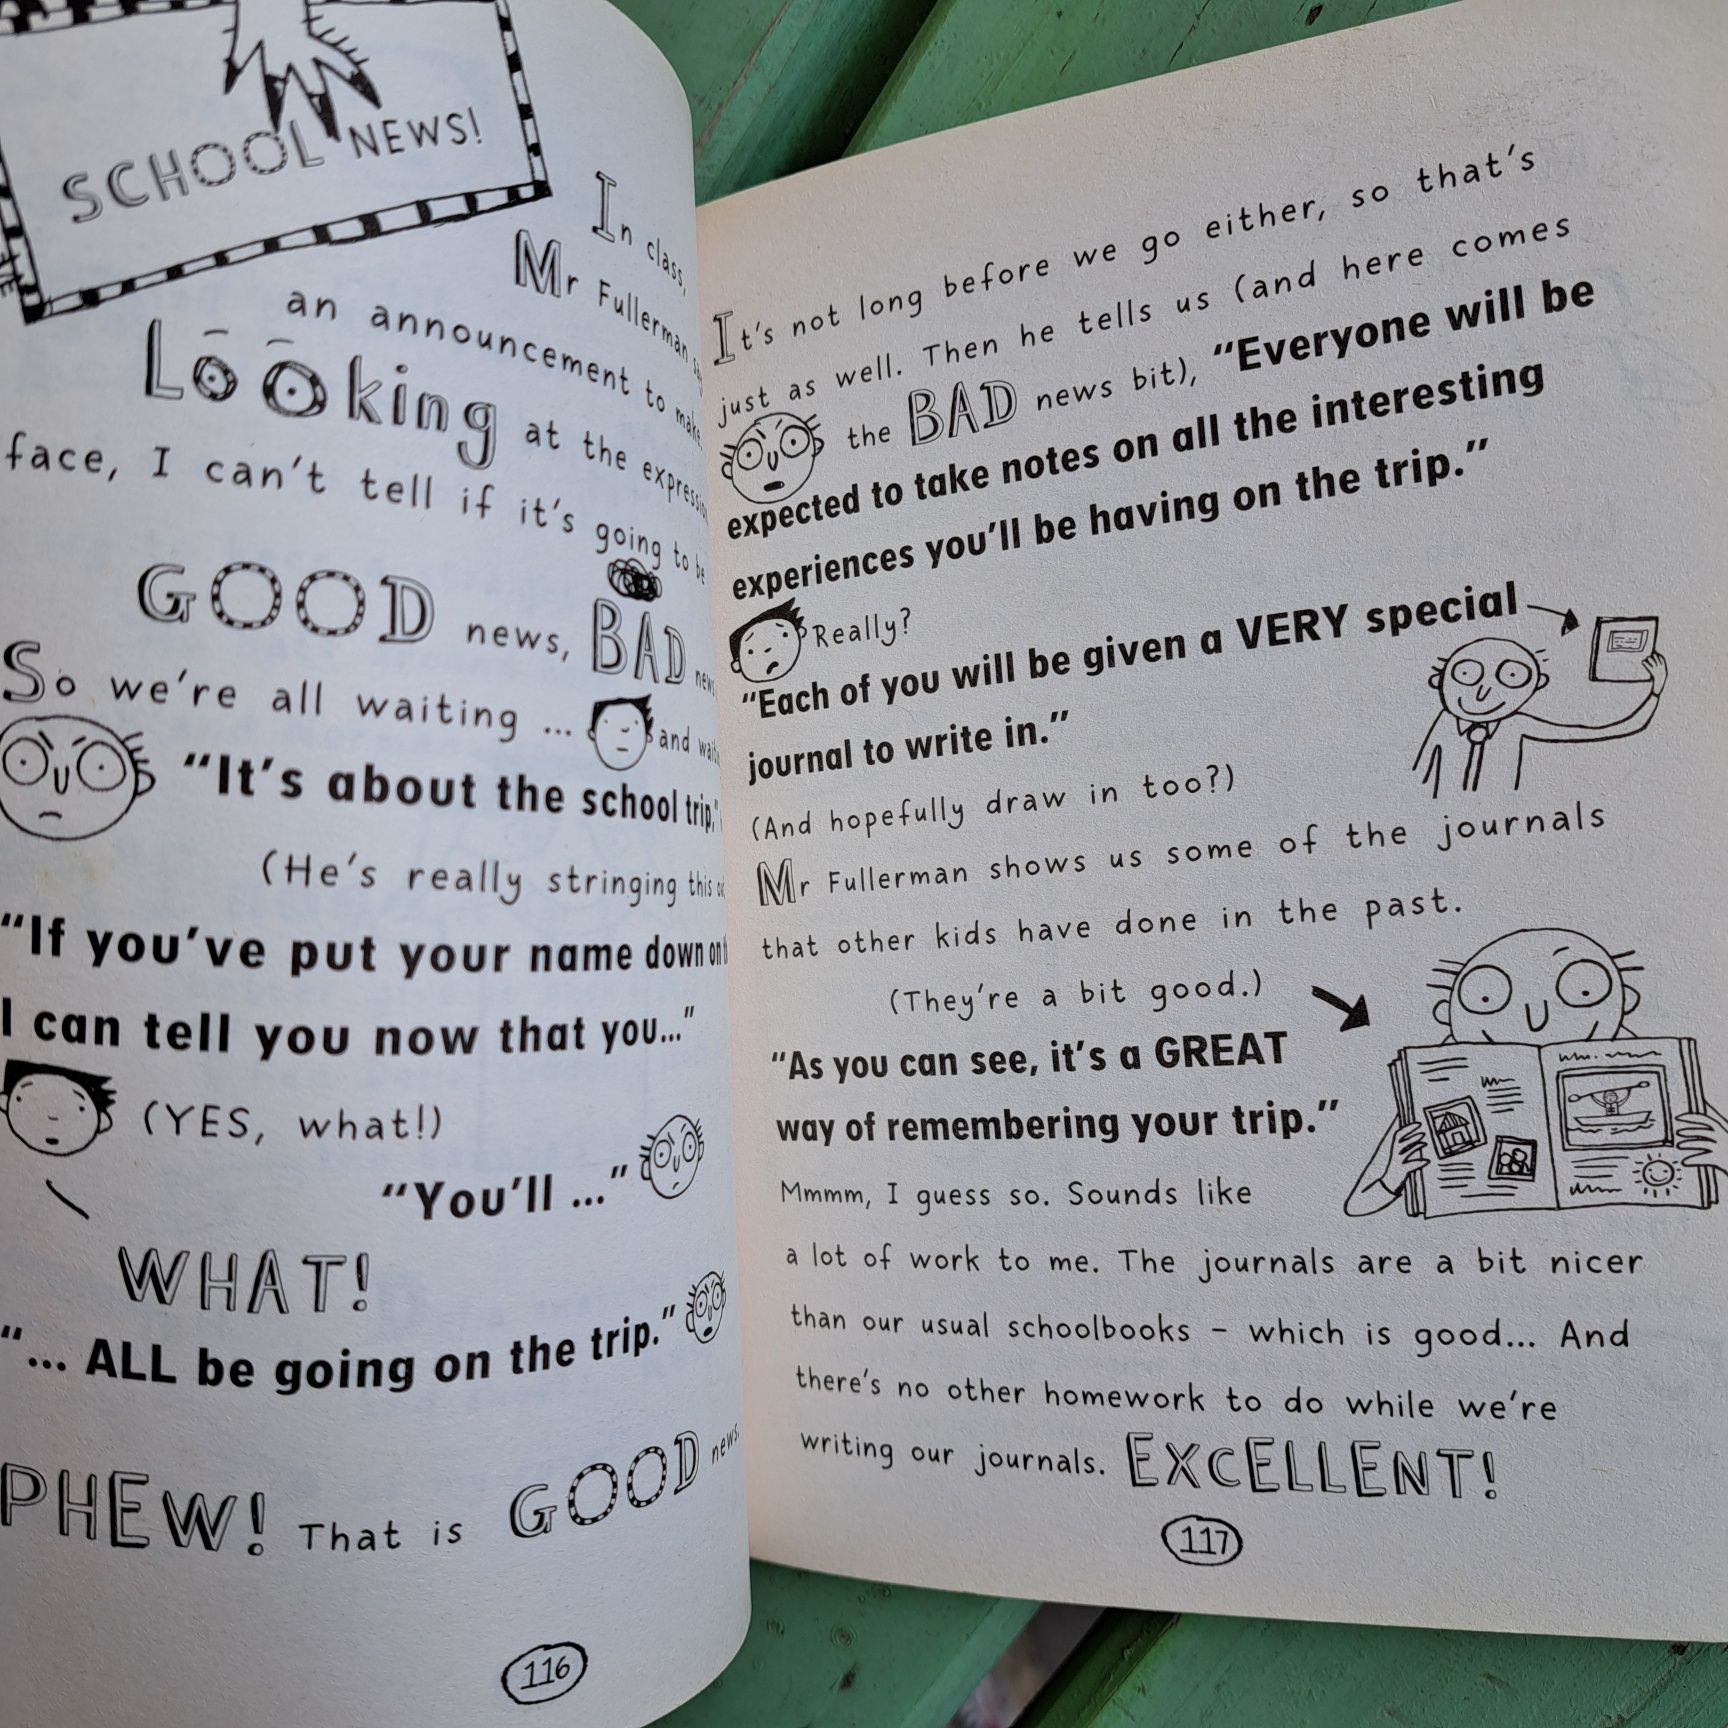 SCHOOL NEWS!
In class,
Mr Fullerman says
an announcement to make.
Looking at the expression
face, I can't tell if it's going to be
GOOD news, BAD news
So we're all waiting ... and
"It's about the school trip,"
(He's really stringing this
"If you've put your name down on
I can tell you now that you..."
(YES, what!)
"You'll ..."
WHAT!
"... ALL be going on the trip."
PHEW! That is GOOD news.
116
It's not long before we go either, so that's
just as well. Then he tells us (and here comes
the BAD news bit), "Everyone will be
expected to take notes on all the interesting
experiences you'll be having on the trip."
Really?
"Each of you will be given a VERY special
journal to write in."
(And hopefully draw in too?)
Mr Fullerman shows us some of the journals
that other kids have done in the past.
(They're a bit good.)
"As you can see, it's a GREAT
way of remembering your trip."
Mmmm, I guess so. Sounds like
a lot of work to me. The journals are a bit nicer
than our usual schoolbooks – which is good... And
there's no other homework to do while we're
writing our journals. EXCELLENT!
117